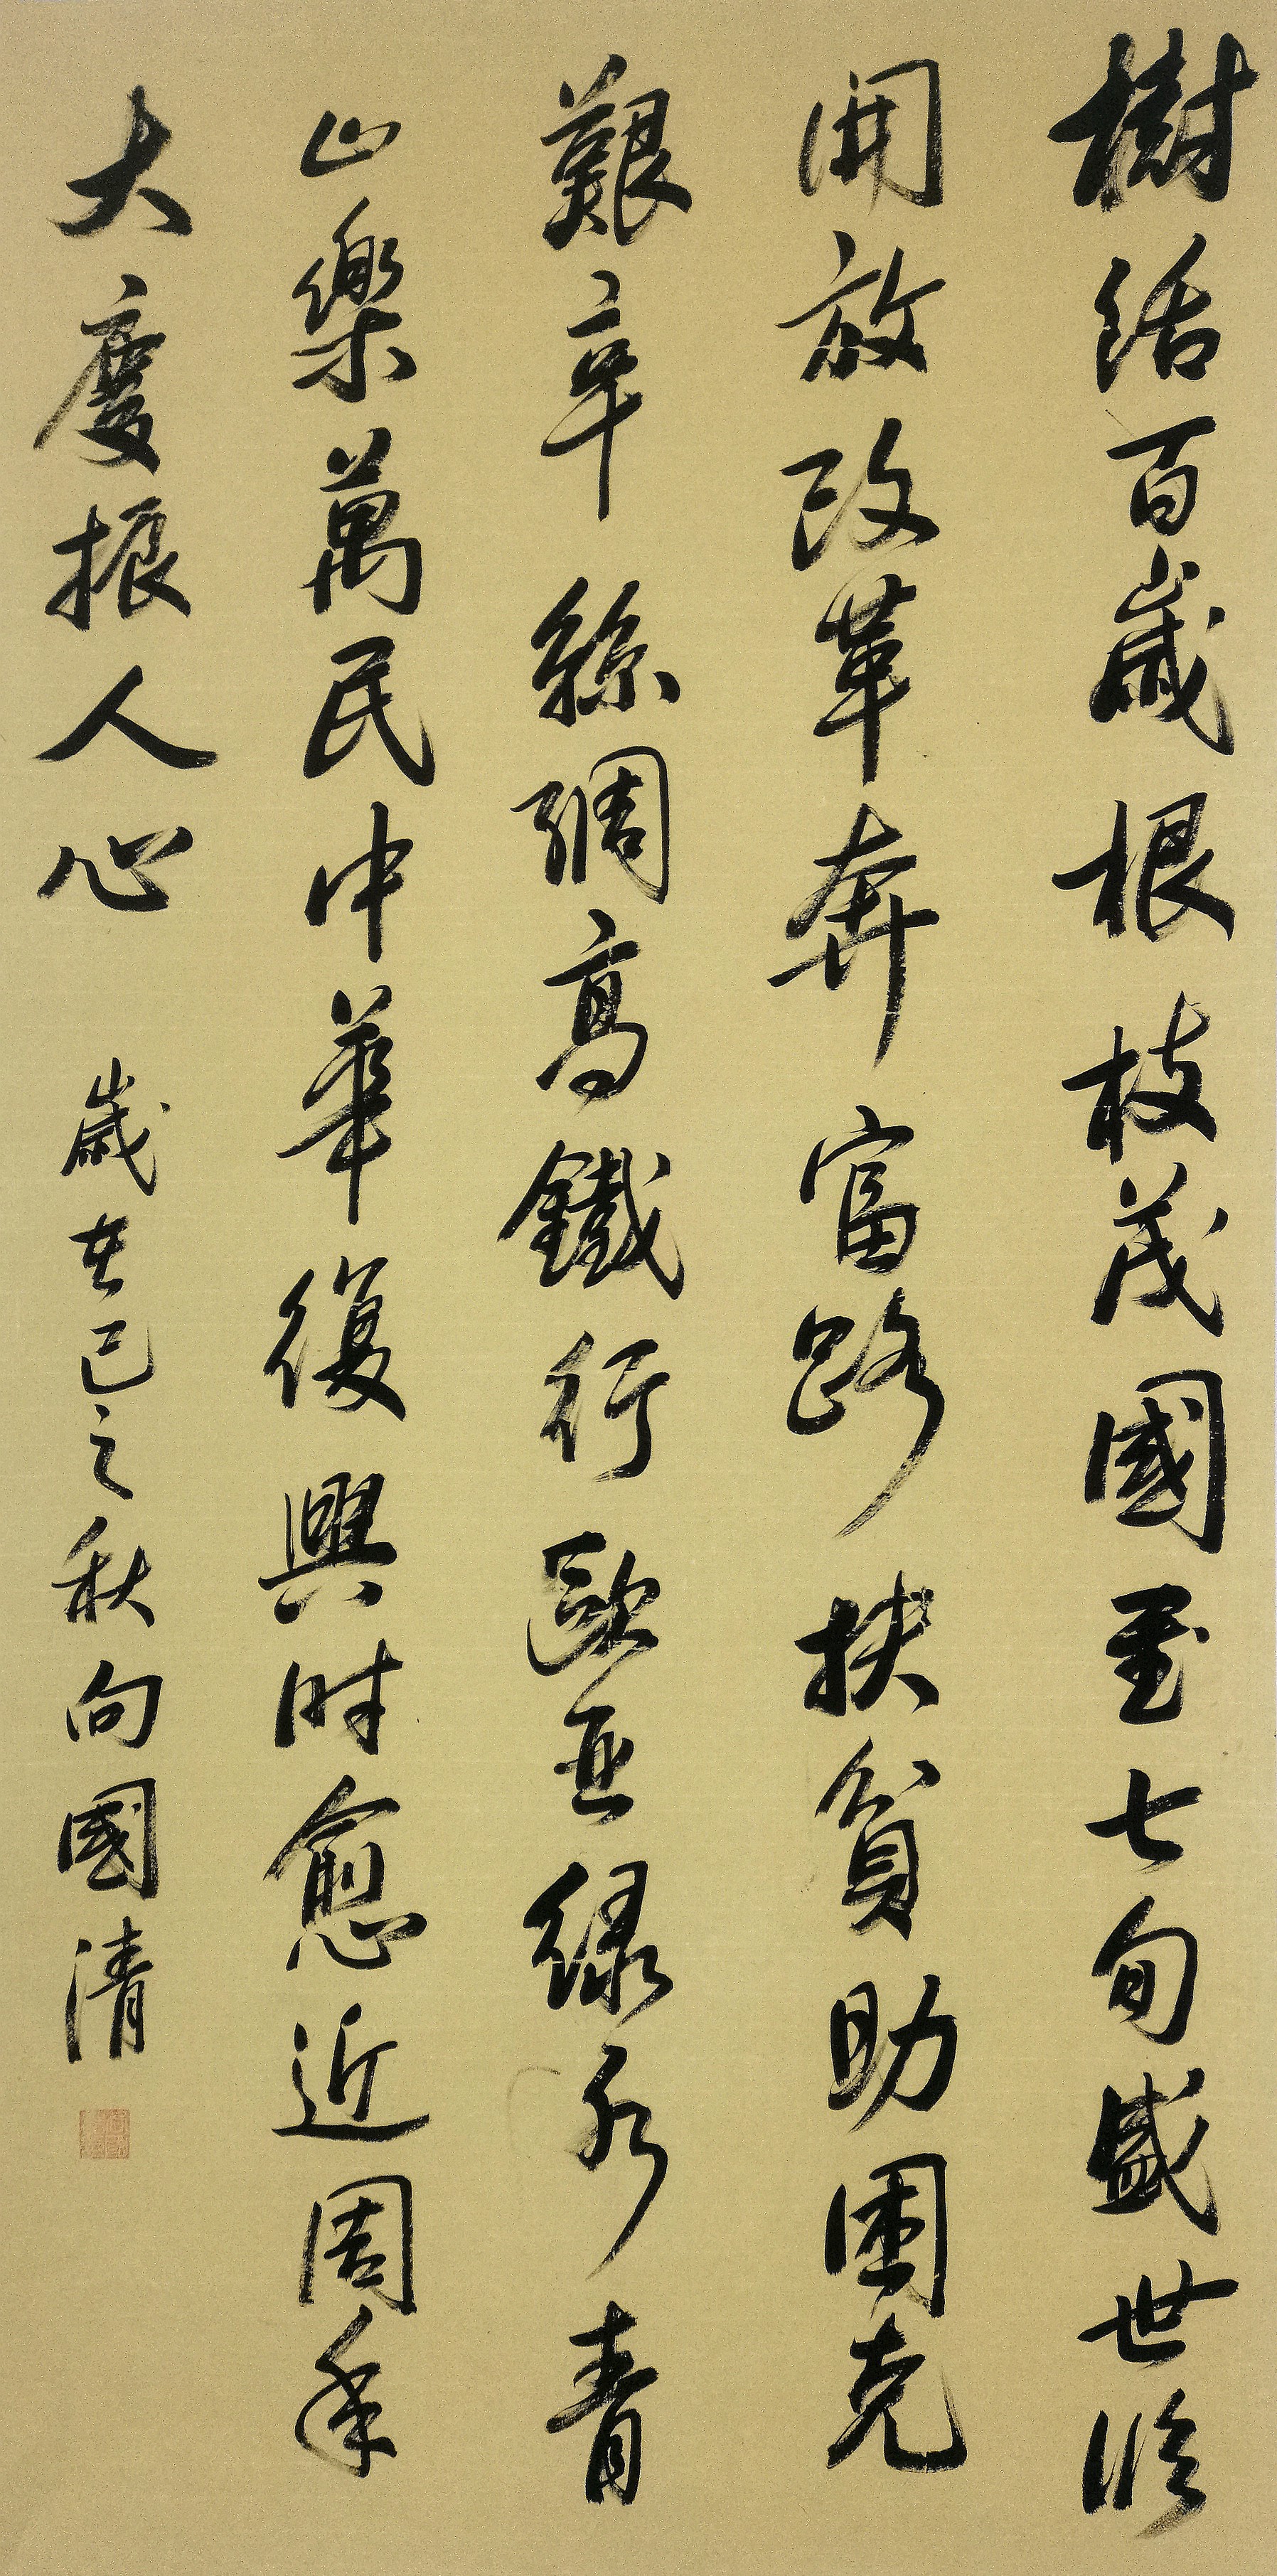 樹活百歲根枝茂國至七旬盛世臨
開放改革奔富路扶貧助困克
艱辛絲綢高鐵行歐亞綠水青
山樂萬民中華復興时愈近周年
大慶振人心
歲在己之秋向國清